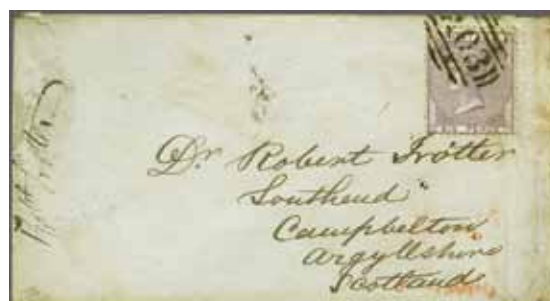 Dr Robert Trotter
Southend
Campbelton
Argyllshire
Scotland